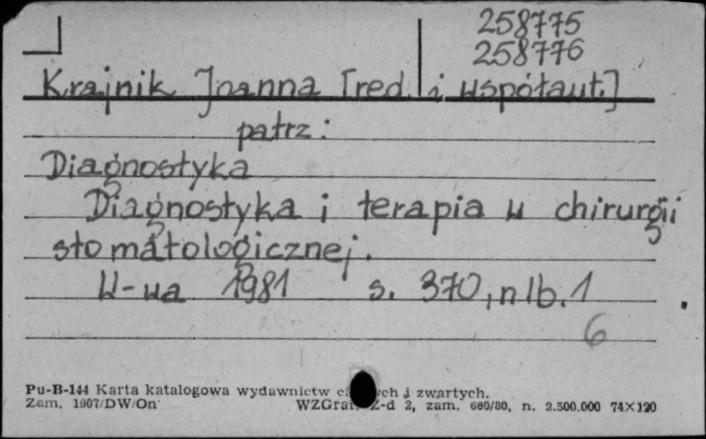 258775
258776
Krajnik Joanna [red. i współaut.]
patrz:
Diagnostyka
Diagnostyka i terapia w chirurgii
stomatologicznej.
W-wa 1981 s. 370, nlb. 1
6
Pu-B-144 Karta katalogowa wydawnictw i zwartych.
Zam. 1907/DW/On WZGraf. Z-d 2, zam. 680/80, n. 2.500.000 74×120